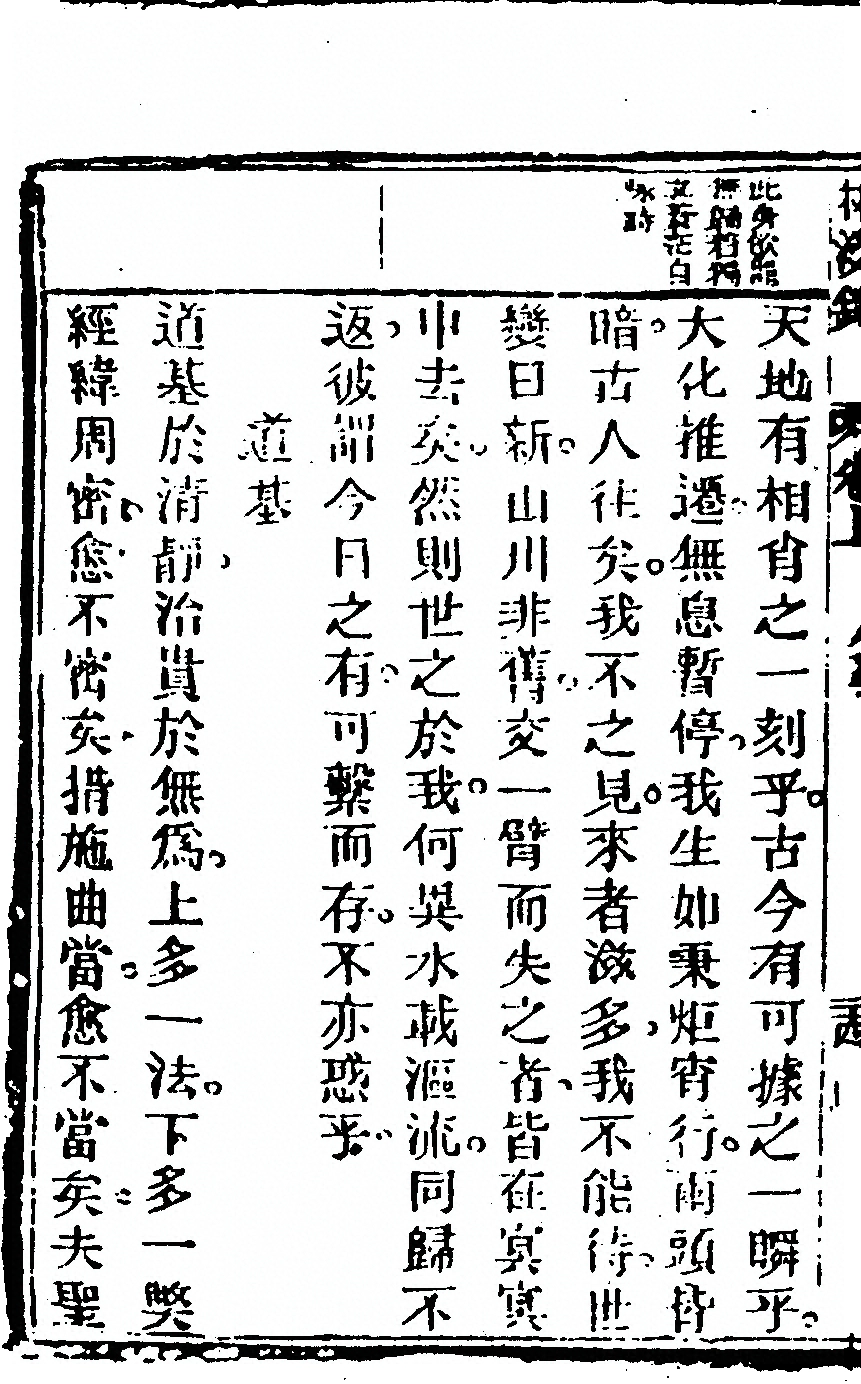 天地有相肖之一刻乎古今有可據之一瞬乎
大化推遷無息暫停我生如秉炬宵行兩頭皆
暗古人往矣我不之見來者滋多我不能待世
變日新山川非舊交一臂而失之者皆在冥冥
中去矣然則世之於我何異水載漚流同歸不
返彼謂今日之有可繫而存不亦惑乎
道基
道基於清靜治貴於無爲上多一法下多一獘
經緯周密愈不密矣措施曲當愈不當矣夫聖